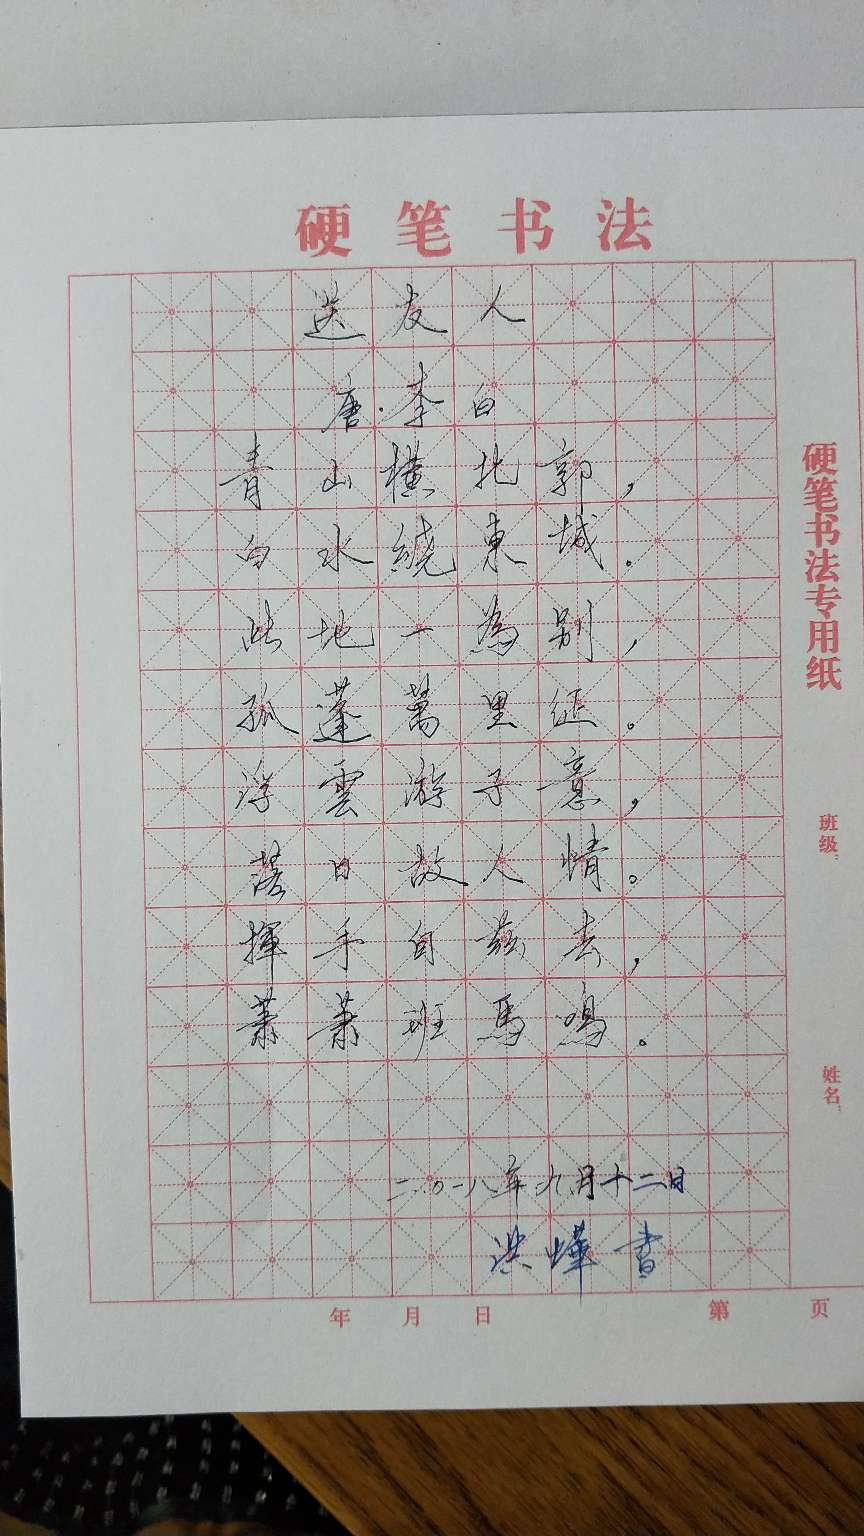 硬笔书法
送友人
唐·李白
青山橫北郭，
白水繞東城。
此地一為别，
孤蓬萬里征。
浮雲游子意，
落日故人情。
揮手自茲去，
蕭蕭班馬鳴。
二〇一八年九月十二日
洪燁書
年 月 日
第 页
硬笔书法专用纸
班级:
姓名: